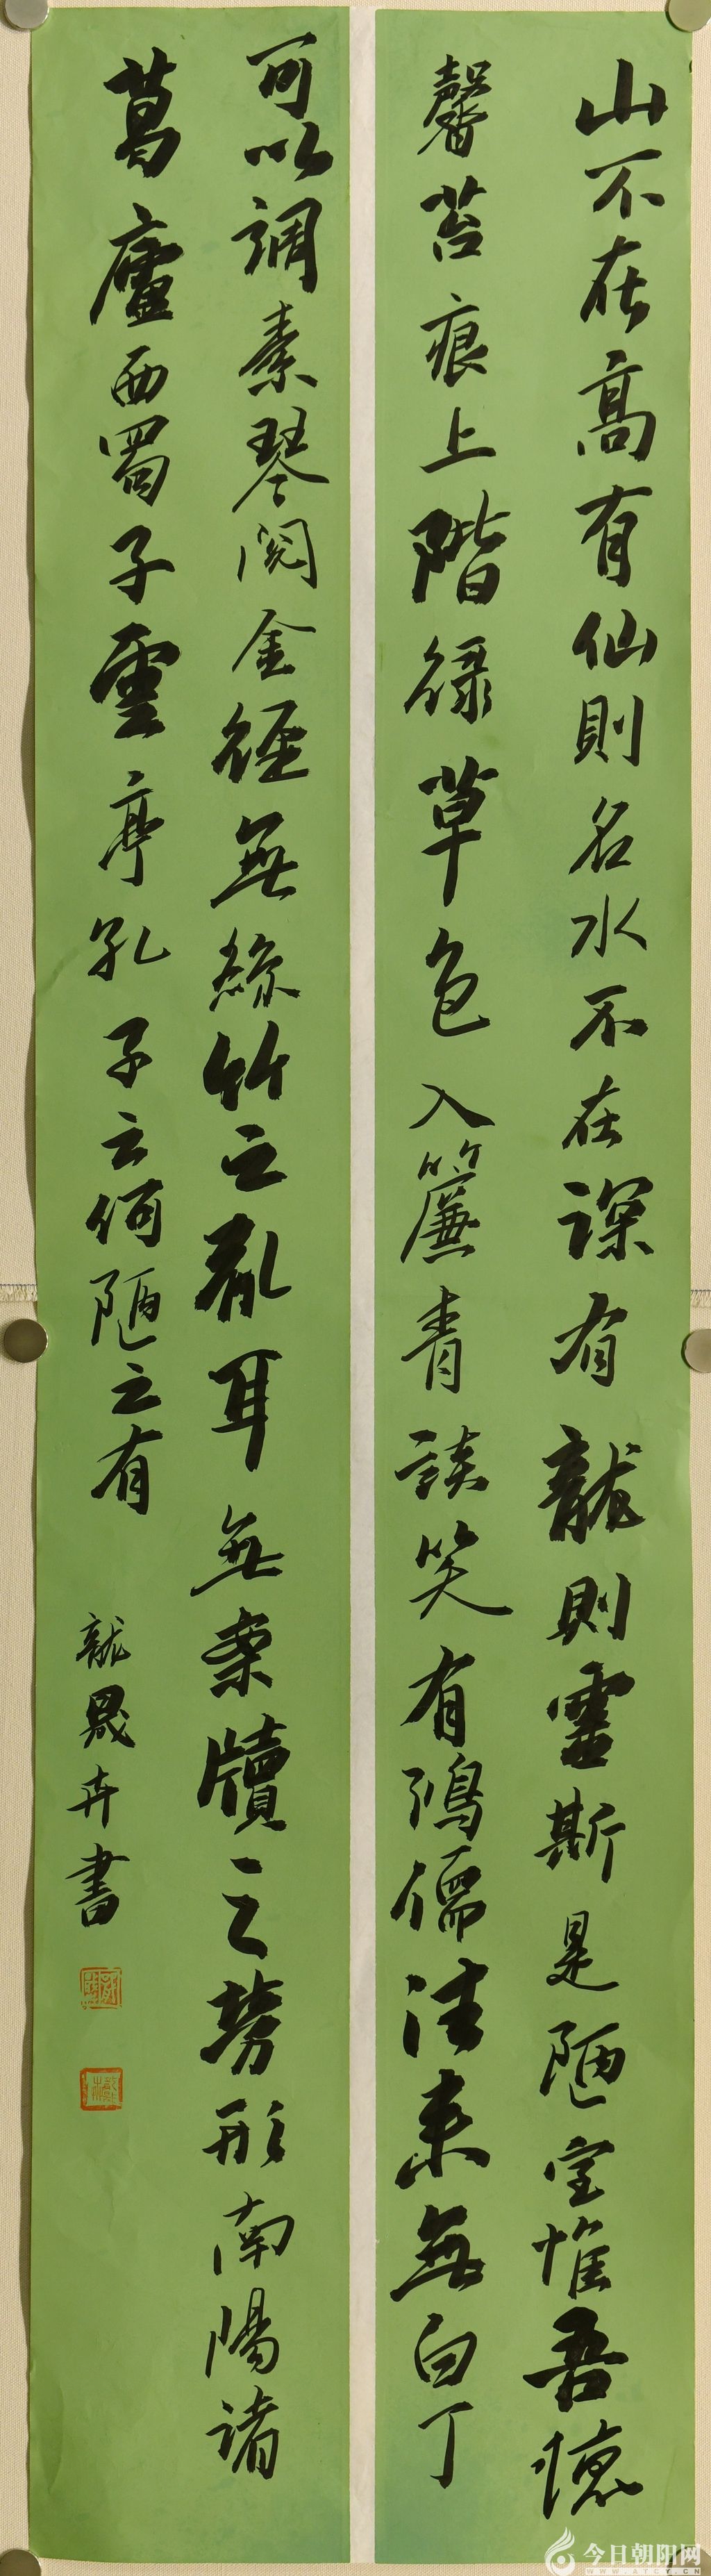 山不在高有仙則名水不在深有龍則靈斯是陋室惟吾德
馨苔痕上階綠草色入簾青談笑有鴻儒往來無白丁
可以調素琴閱金經無絲竹之亂耳無案牘之勞形南陽諸
葛廬西蜀子雲亭孔子云何陋之有
龍晟卉書
今日朝阳网
WWW.ATCY.CN